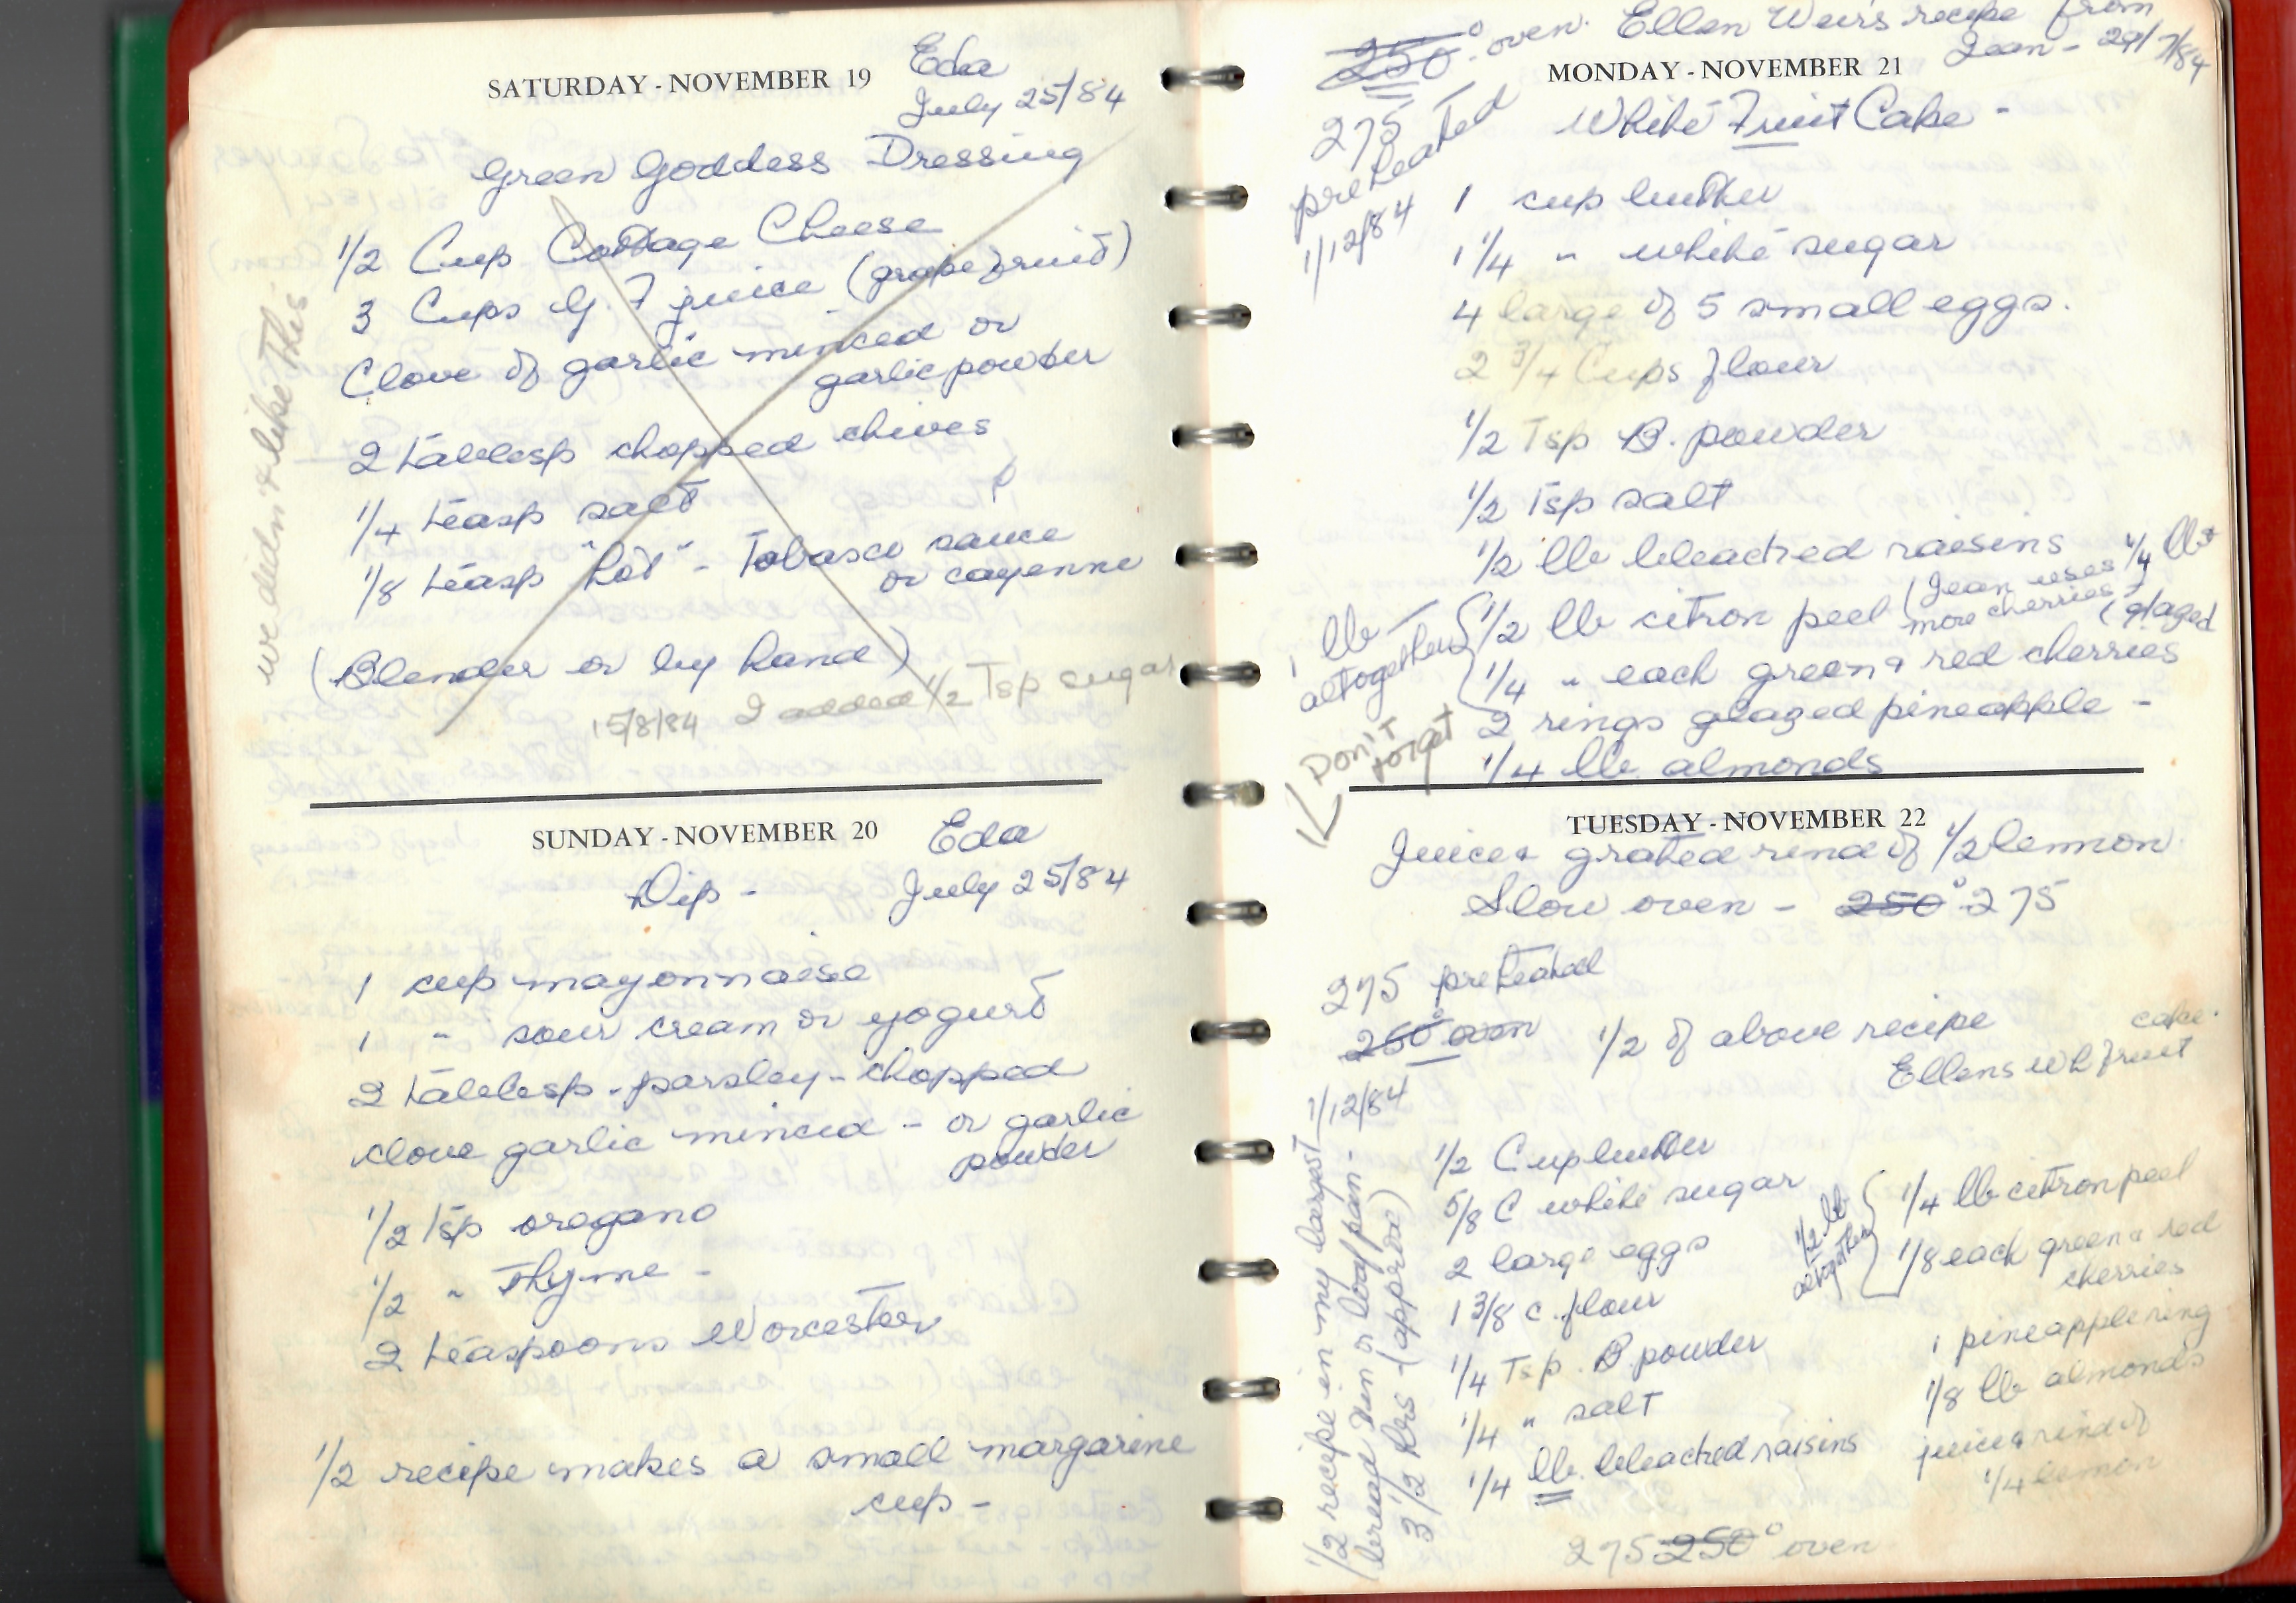 SATURDAY - NOVEMBER 19
Eda
July 25/84
Green Goddess Dressing
1/2 Cup Cottage Cheese
3 Cups G. F juice (grapefruit)
Clove of garlic minced or
garlic powder
2 tablesp chopped chives
1/4 teasp salt
1/8 teasp "hot" - Tobasco sauce
or cayenne
(Blender or by hand)
15/8/84 I added 1/2 Tsp sugar
we didn't like this
SUNDAY - NOVEMBER 20
Eda
Dip - July 25/84
1 cup mayonnaise
1 " sour cream or yogurt
2 tablesp - parsley - chopped
clove garlic minced - or garlic
powder
1/2 Tsp oregano
1/2 " Thyme -
2 teaspoons Worcester
1/2 recipe makes a small margarine
cup -
250° oven. Ellen Weir's recipe from
Jean - 29/7/84
MONDAY - NOVEMBER 21
275
preheated
1/12/84
White Fruit Cake -
1 cup butter
1 1/4 " white sugar
4 large or 5 small eggs.
2 3/4 Cups flour
1/2 Tsp B. powder
1/2 Tsp salt
1/2 lb bleached raisins
1/2 lb citron peel (Jean uses 1/4 lb
more cherries)
(glazed
1/4 " each green & red cherries
1 lb
altogether
2 rings glazed pineapple -
1/4 lb. almonds
Don't
forget
TUESDAY - NOVEMBER 22
Juice & grated rind of 1/2 lemon.
Slow oven - 250° 275
275 preheated
250° oven
1/2 of above recipe
Ellens wh fruit
cake.
1/12/84
1/2 recipe in my largest
bread tin or loaf pan -
3 1/2 hrs - (approx)
1/2 Cup butter
5/8 C white sugar
2 large eggs
1 3/8 c. flour
1/4 Tsp. B powder
1/4 " salt
1/4 lb. bleached raisins
1/2 lb
altogether
1/4 lb citron peel
1/8 each green & red
cherries
1 pineapple ring
1/8 lb almonds
juice & rind of
1/4 lemon
275 250° oven